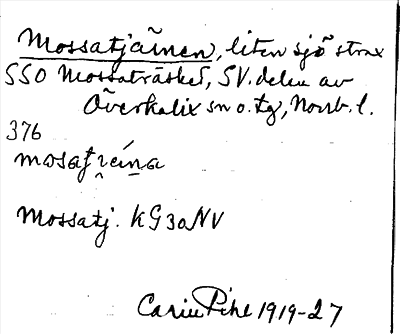 Mossatjäinen, liten sjö strax
SSO Mossaträsket, SV. delen av
Överkalix sn o. tg, Norrb. l.
376
Mossatj. KG30NV
Carin Pihl 1919-27